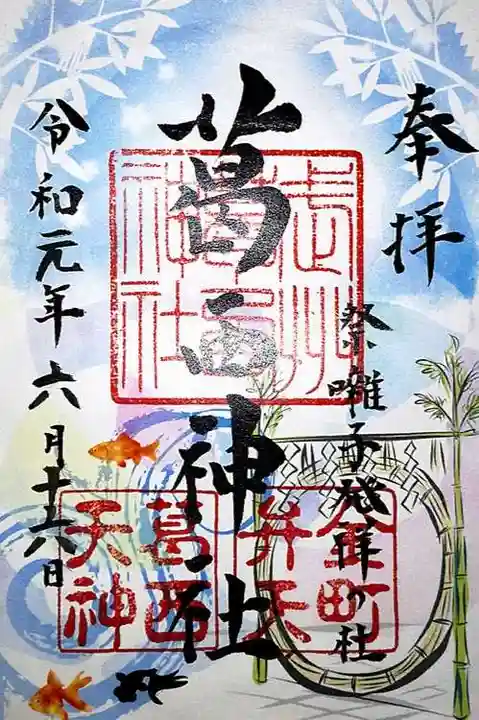 奉拝
祭囃子発祥の社
葛西神社
令和元年六月十六日
武州
葛西
神社
金町
弁天
葛西
天神